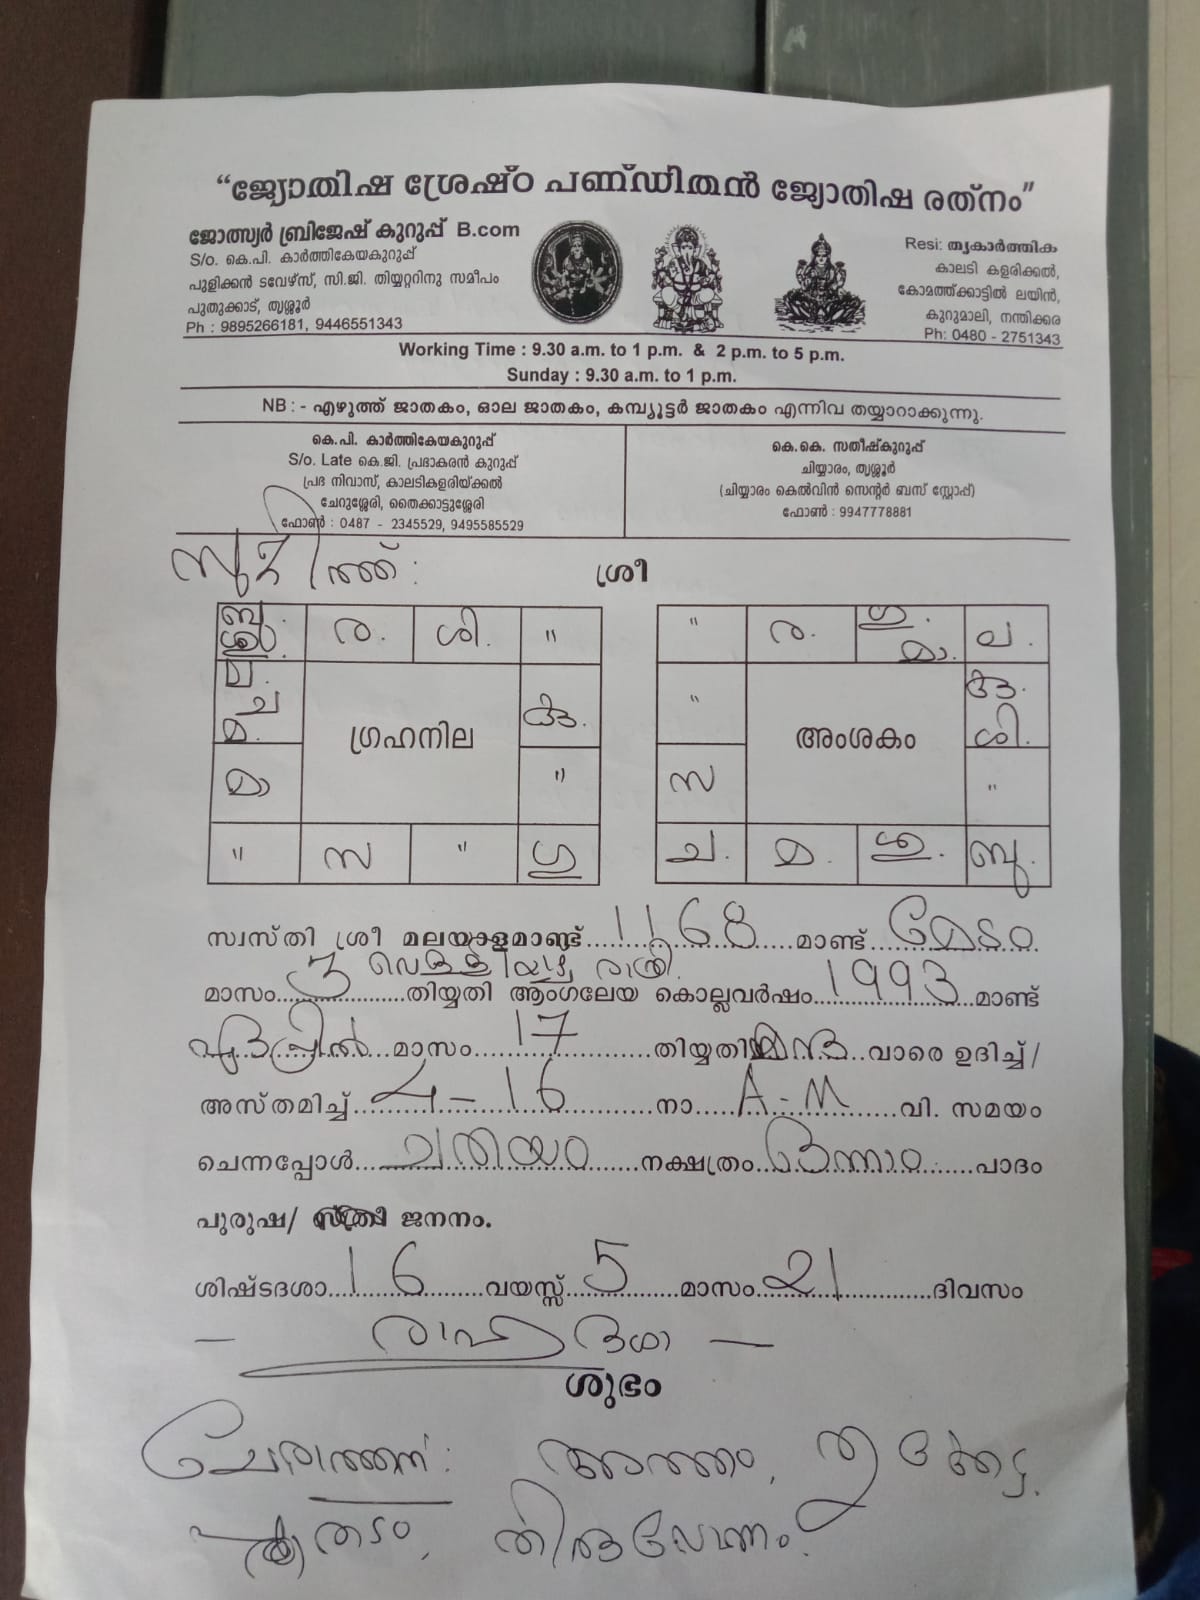 “ജ്യോതിഷ ശ്രേഷ്ഠ പണ്ഡിതൻ ജ്യോതിഷ രത്നം”
ജോത്സ്യർ ബ്രിജേഷ് കുറുപ്പ് B.com
S/o. കെ.പി. കാർത്തികേയകുറുപ്പ്
പുളിക്കൻ ടവേഴ്സ്, സി.ജി. തിയ്യറ്ററിനു സമീപം
പുതുക്കാട്, തൃശ്ശൂർ
Ph : 9895266181, 9446551343
Resi: തൃകാർത്തിക
കാലടി കളരിക്കൽ,
കോമത്ത്കാട്ടിൽ ലയിൻ,
കുറുമാലി, നന്തിക്കര
Ph: 0480 - 2751343
Working Time : 9.30 a.m. to 1 p.m. & 2 p.m. to 5 p.m.
Sunday : 9.30 a.m. to 1 p.m.
NB : - എഴുത്ത് ജാതകം, ഓല ജാതകം, കമ്പ്യൂട്ടർ ജാതകം എന്നിവ തയ്യാറാക്കുന്നു.
കെ.പി. കാർത്തികേയകുറുപ്പ്
S/o. Late കെ.ജി. പ്രഭാകരൻ കുറുപ്പ്
പ്രഭ നിവാസ്, കാലടികളരിയ്ക്കൽ
ചേറുശ്ശേരി, തൈക്കാട്ടുശ്ശേരി
ഫോൺ : 0487 - 2345529, 9495585529
കെ.കെ. സതീഷ്കുറുപ്പ്
ചിയ്യാരം, തൃശ്ശൂർ
(ചിയ്യാരം കെൽവിൻ സെന്റർ ബസ് സ്റ്റോപ്പ്)
ഫോൺ : 9947778881
ശ്രീ
ബു. ശു. ര. ശി. "
ല. ച മ. ഗ്രഹനില കു.
മാ "
" സ " ഗു
" ര. ഗു. മാ. ല.
" അംശകം കു. ശി.
സ "
ച. മ. ശു. ബു.
സ്വസ്തി ശ്രീ മലയാളമാണ്ട് 1168 മാണ്ട് മേടം
മാസം 3 വെള്ളിയാഴ്ച രാത്രി. തിയ്യതി ആംഗലേയ കൊല്ലവർഷം 1993 മാണ്ട്
ഏപ്രിൽ മാസം 17 തിയ്യതി വാരെ ഉദിച്ച് /
അസ്തമിച്ച് 4-16 നാ A-M വി. സമയം
ചെന്നപ്പോൾ ചതയം നക്ഷത്രം ഒന്നാം പാദം
പുരുഷ/ സ്ത്രീ ജനനം.
ശിഷ്ടദശാ 16 വയസ്സ് 5 മാസം 21 ദിവസം
— രാഹുദശാ —
ശുഭം
അത്തം, തൃക്കേട്ട.
തിരുവോണം.